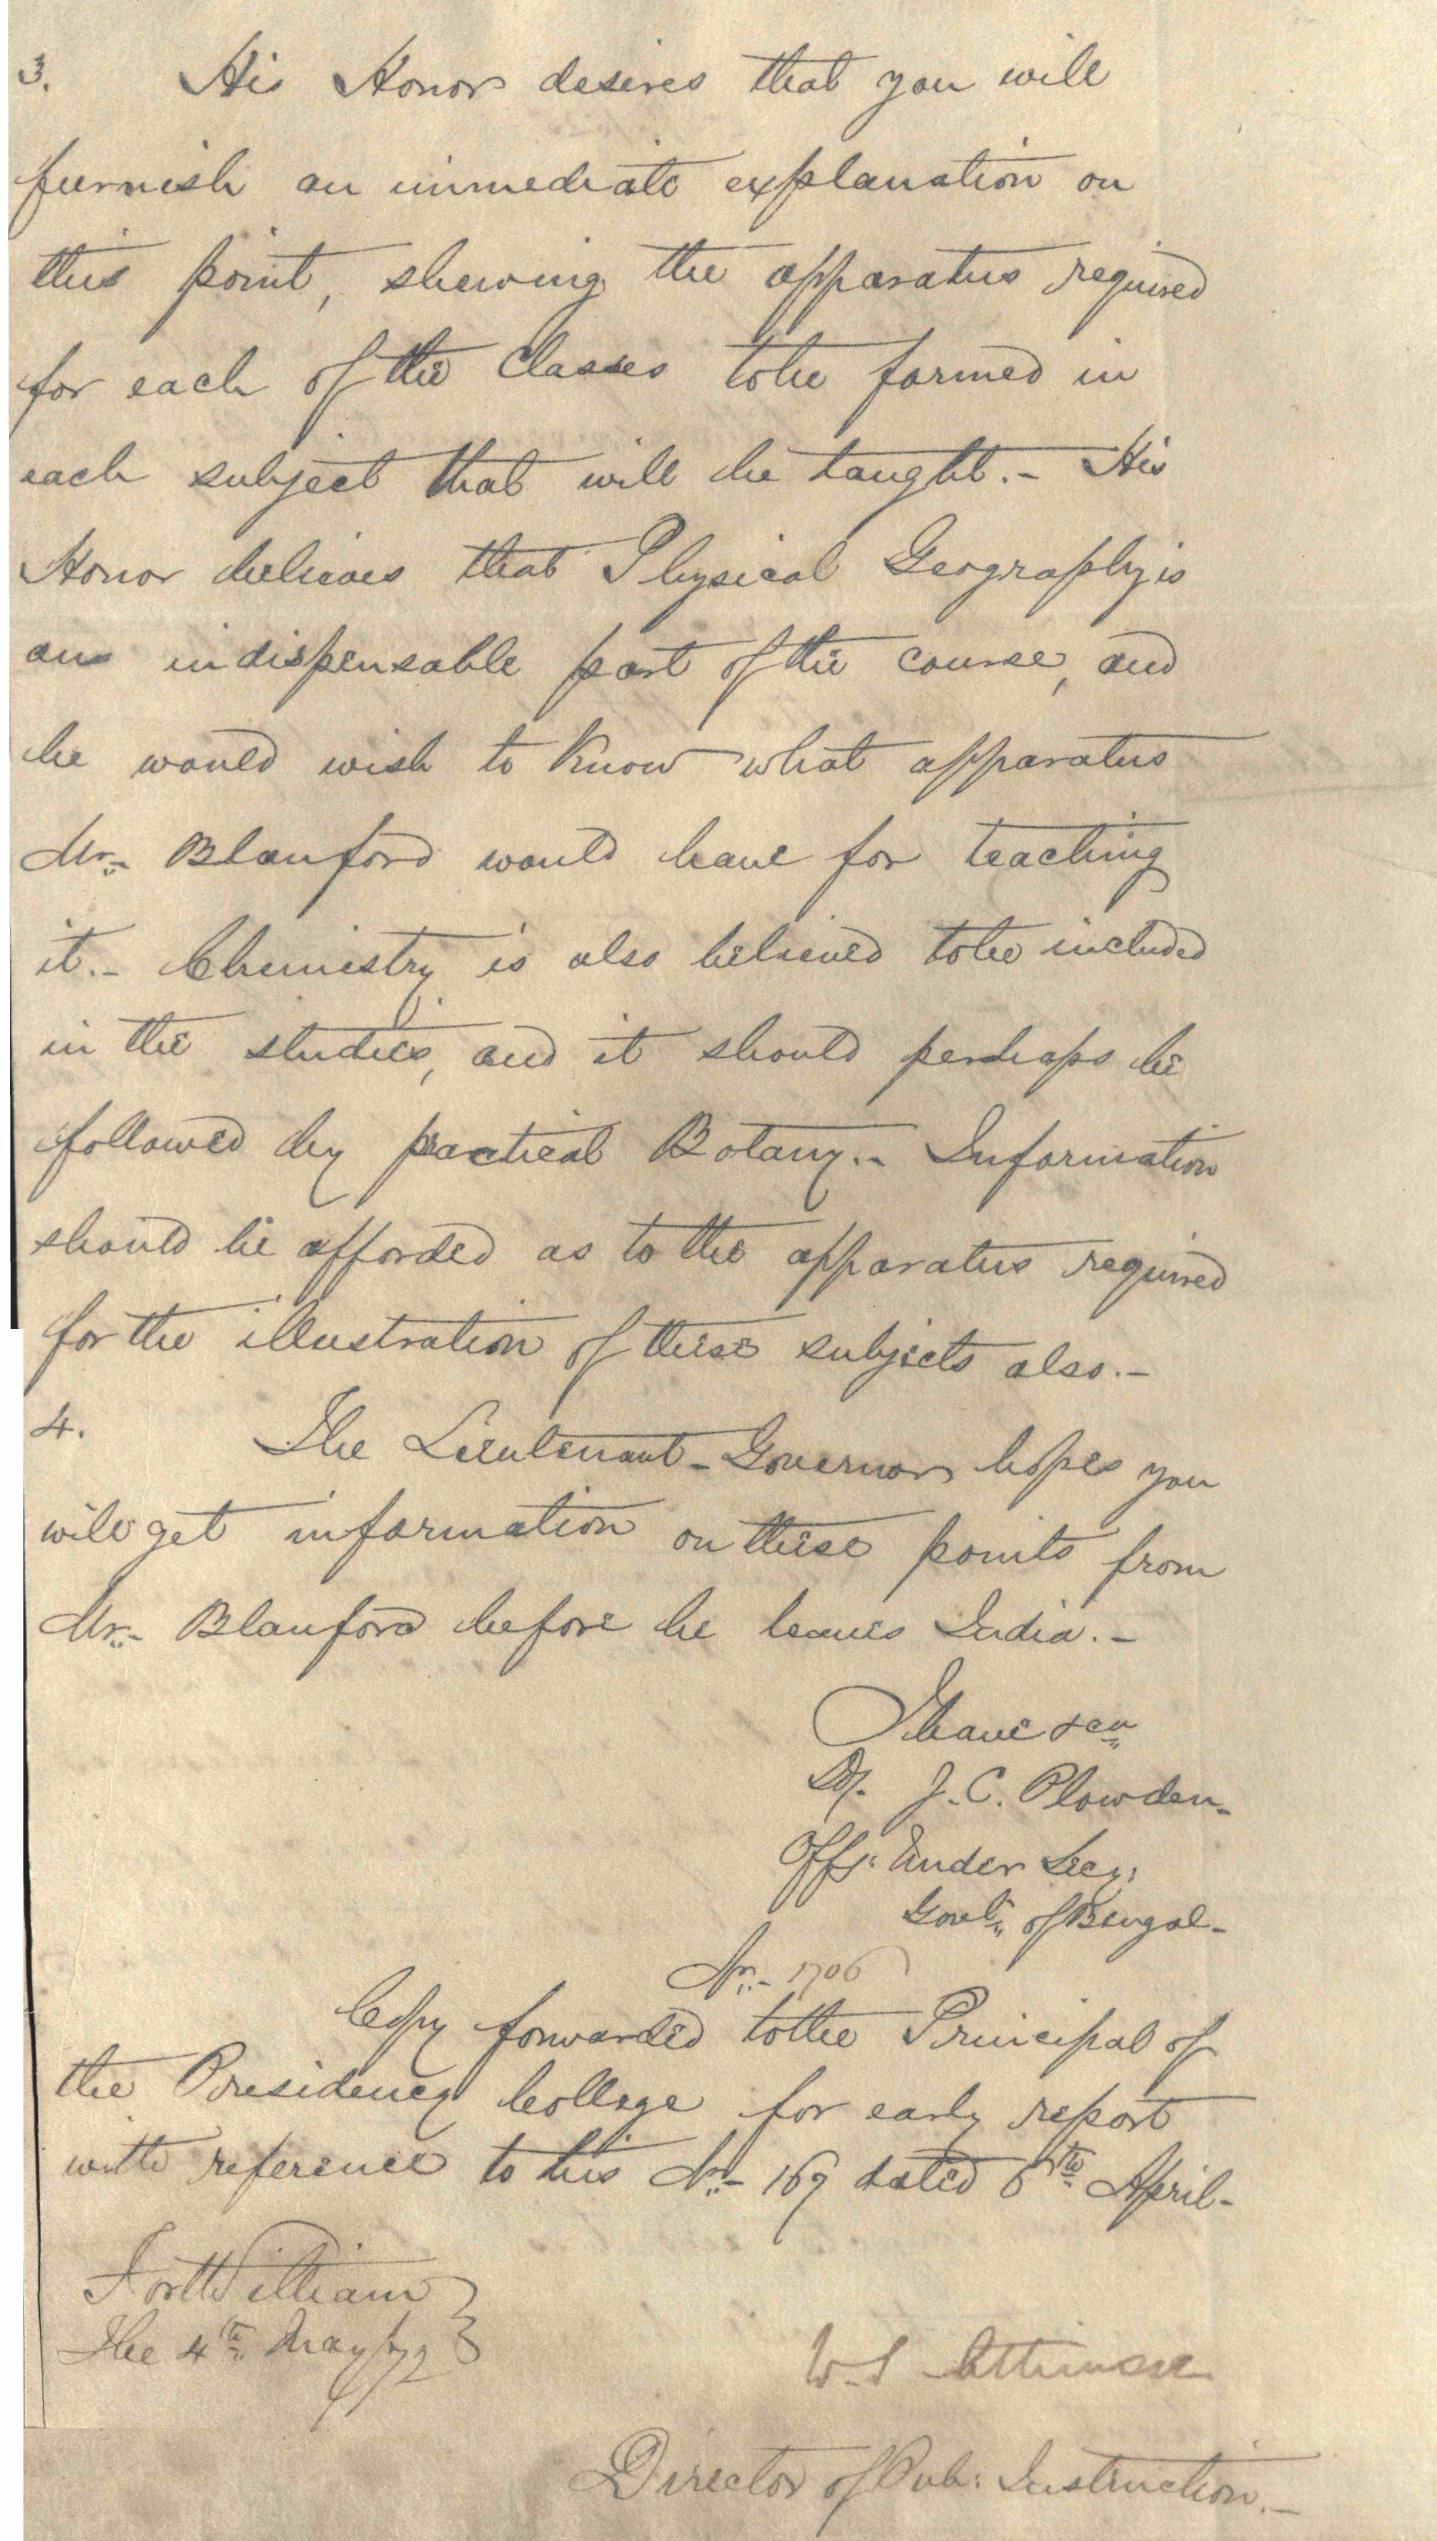 3. His Honor desires that you will
furnish an immediate explanation on
this point, shewing the apparatus required
for each of the Classes to be formed in
each subject that will be taught.- His
Honor believes that Physical Geography is
an indispensable part of the course, and
he would wish to know what apparatus
Mr.- Blanford would have for teaching
it.- Chemistry is also believed to be included
in the studies, and it should perhaps be
followed by practical Botany.- Information
should be afforded as to the apparatus required
for the illustration of these subjects also.-
4. The Lieutenant-Governor hopes you
will get information on these points from
Mr.- Blanford before he leaves India.-
I have &ca
J. C. Plowden-
Offg: Under Secy:
Govt. of Bengal-
No.- 1706
Copy forwarded to the Principal of
the Presidency College for early report
with reference to his No.- 169 dated 6th April-
Fort William
The 4th May /72
W. S. Atkinson
Director of Pub: Instruction.-